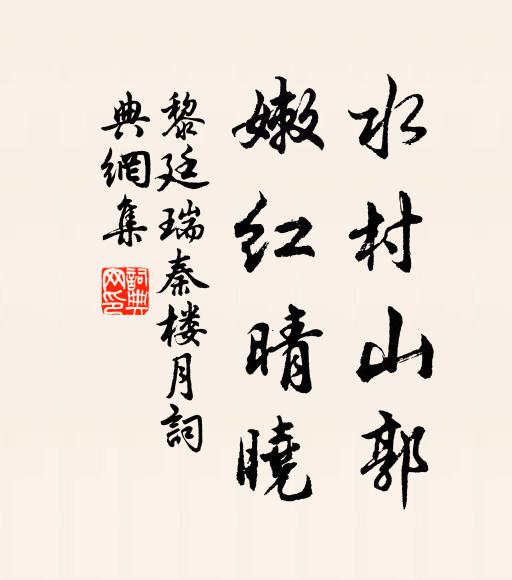 水村山郭
嫩红晴曉
黎廷瑞秦楼月詞
典網集
詞典网印